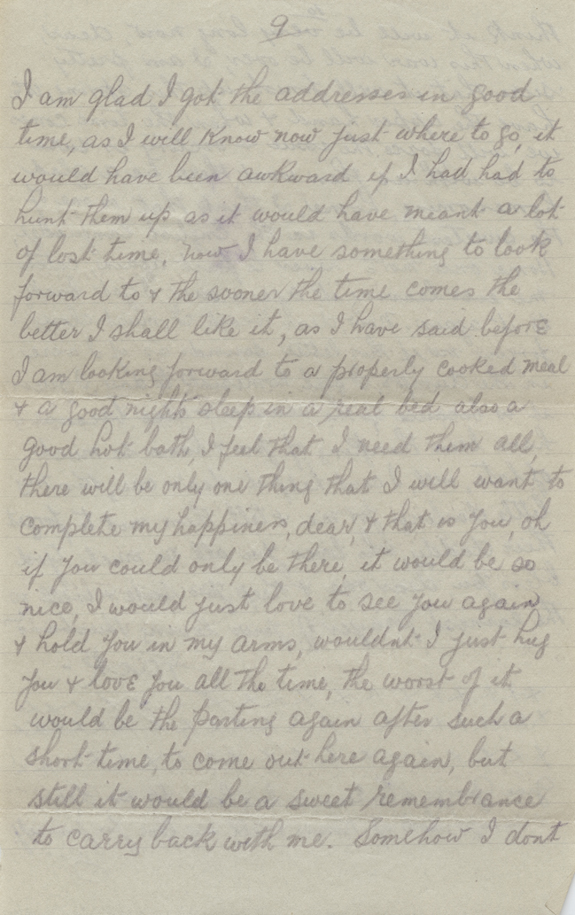 9
I am glad I got the addresses in good
time, as I will know now just where to go, it
would have been awkward if I had had to
hunt them up as it would have meant a lot
of lost time, now I have something to look
forward to & the sooner the time comes the
better I shall like it, as I have said before
I am looking forward to a properly cooked meal
& a good nights sleep in a real bed also a
good hot bath, I feel that I need them all,
there will be only one thing that I will want to
complete my happiness, dear, & that is you, oh
if you could only be there, it would be so
nice, I would just love to see you again
& hold you in my arms, wouldnt I just hug
you & love you all the time, the worst of it
would be the parting again after such a
short time, to come out here again, but
still it would be a sweet remembrance
to carry back with me. Somehow I dont